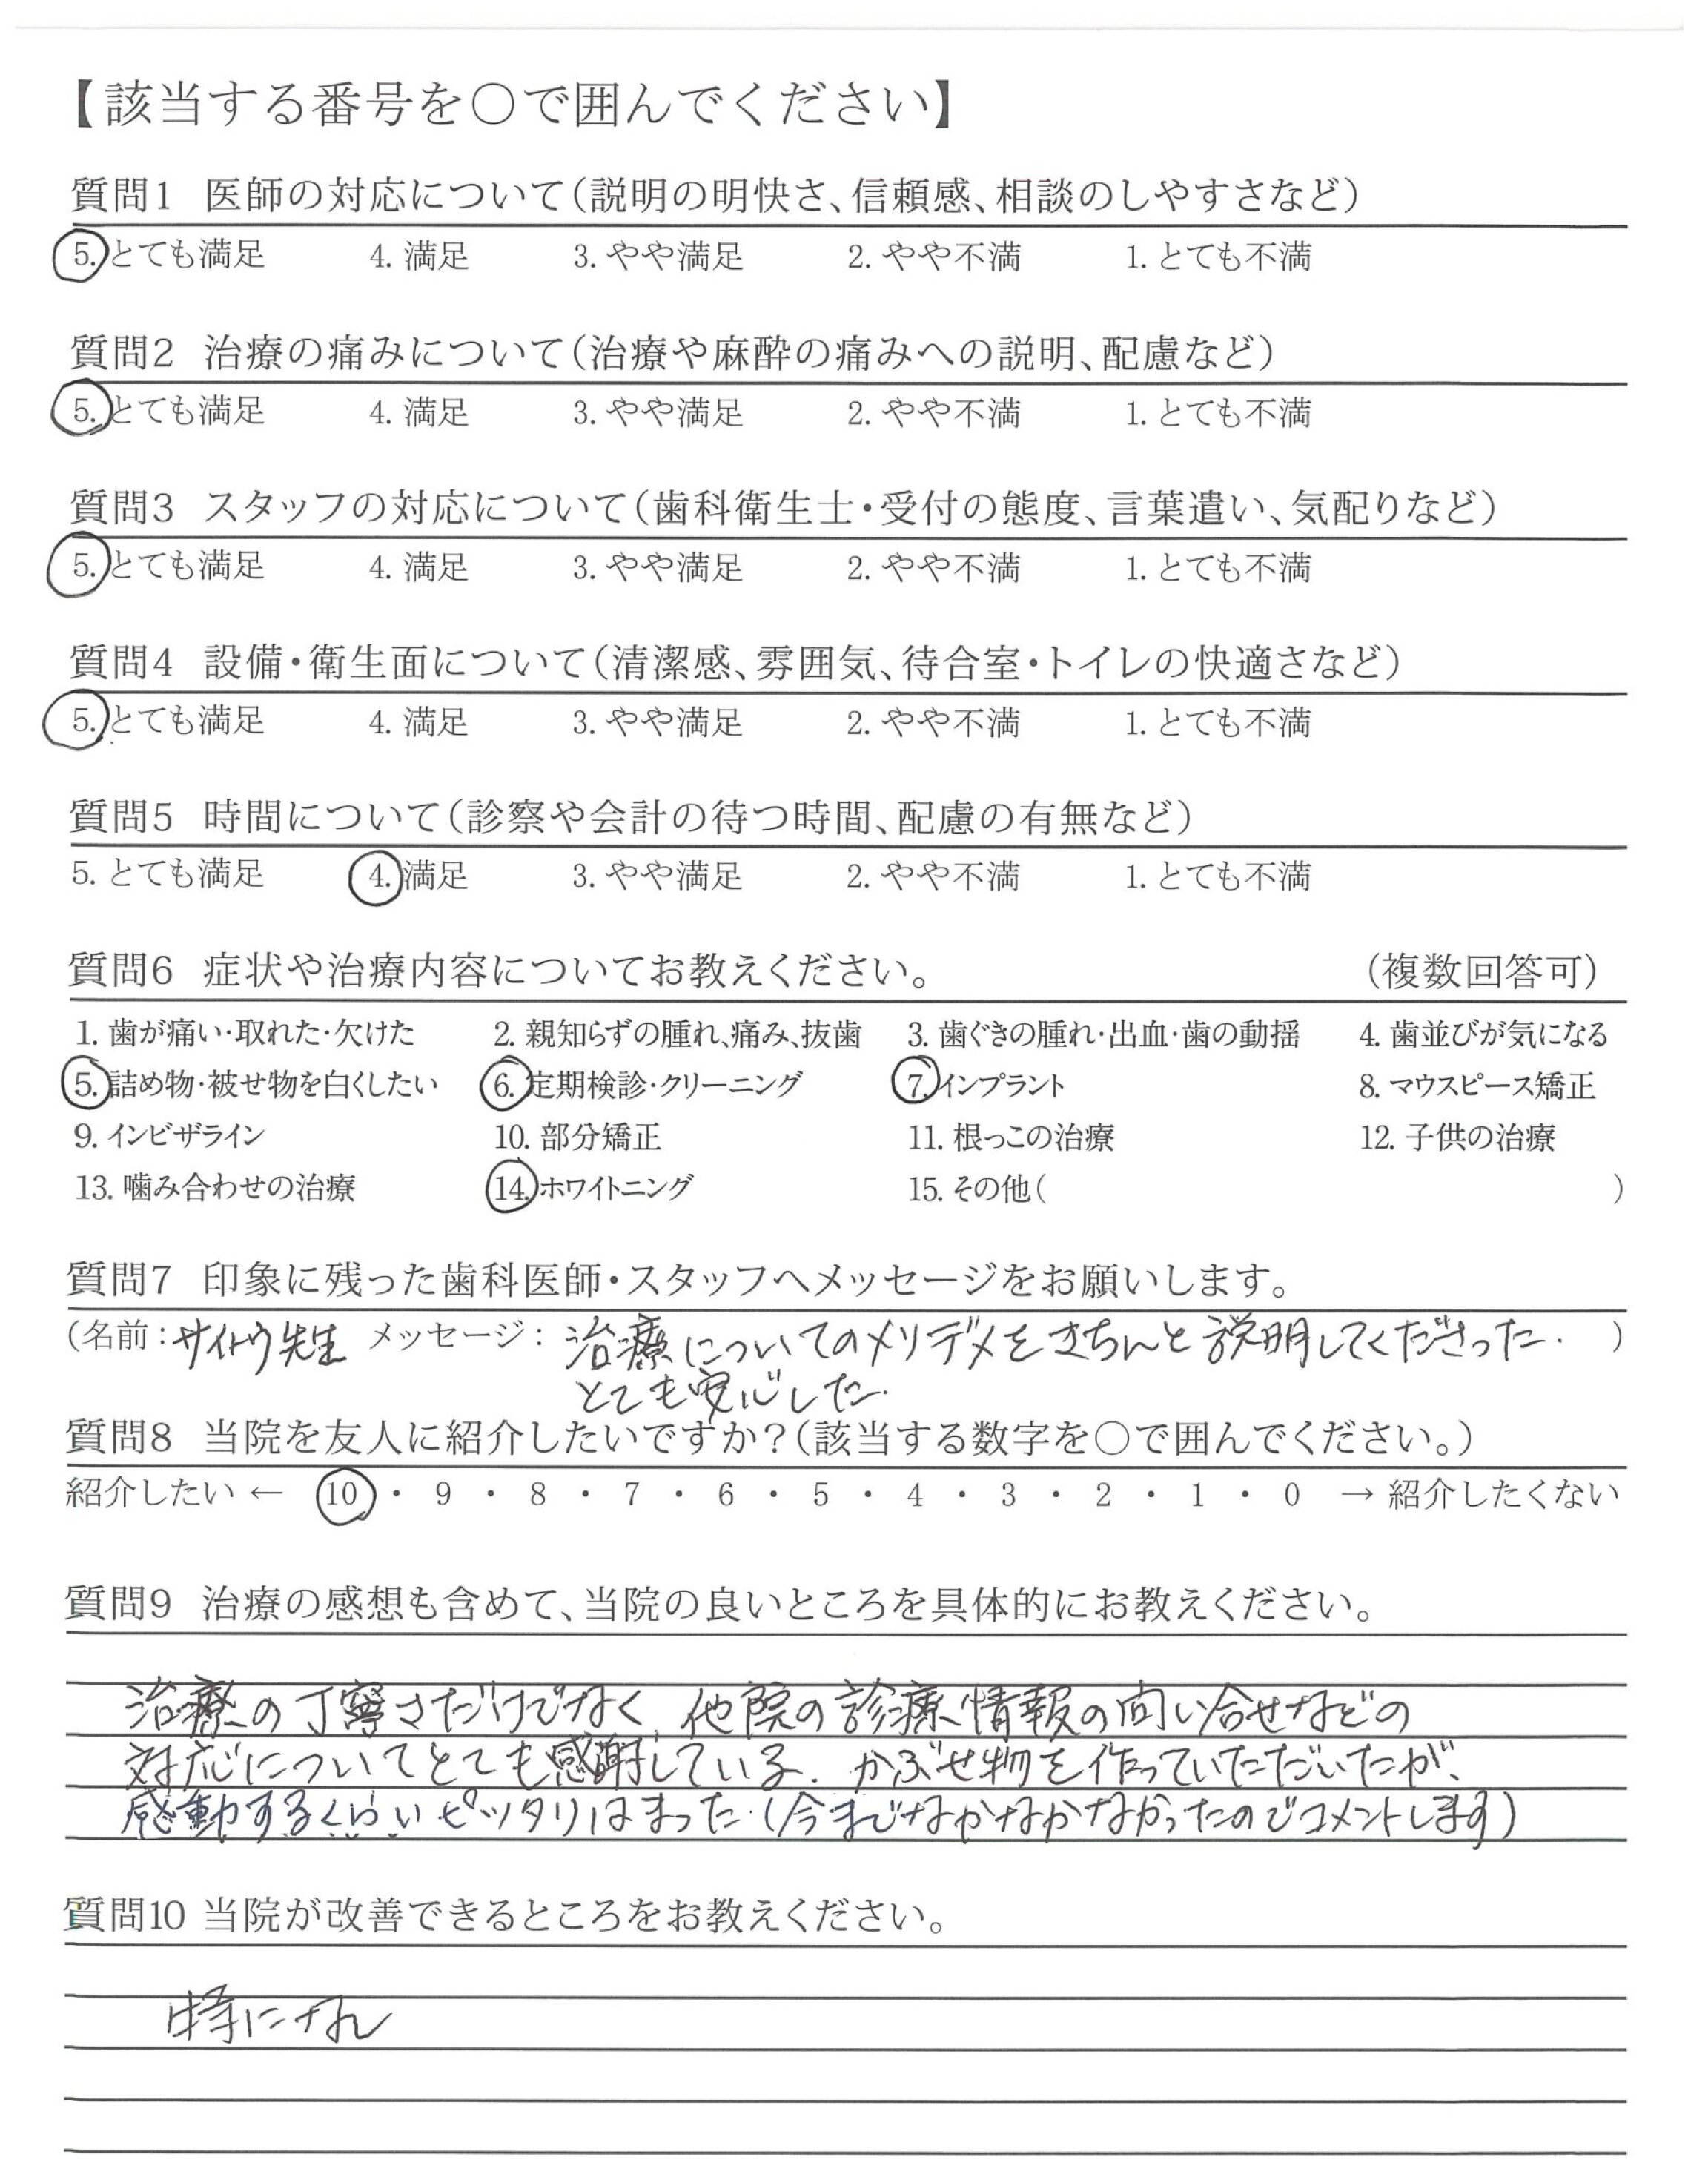 【該当する番号を〇で囲んでください】
質問1 医師の対応について（説明の明快さ、信頼感、相談のしやすさなど）
5. とても満足 4. 満足 3. やや満足 2. やや不満 1. とても不満
質問2 治療の痛みについて（治療や麻酔の痛みへの説明、配慮など）
5. とても満足 4. 満足 3. やや満足 2. やや不満 1. とても不満
質問3 スタッフの対応について（歯科衛生士・受付の態度、言葉遣い、気配りなど）
5. とても満足 4. 満足 3. やや満足 2. やや不満 1. とても不満
質問4 設備・衛生面について（清潔感、雰囲気、待合室・トイレの快適さなど）
5. とても満足 4. 満足 3. やや満足 2. やや不満 1. とても不満
質問5 時間について（診察や会計の待つ時間、配慮の有無など）
5. とても満足 4. 満足 3. やや満足 2. やや不満 1. とても不満
質問6 症状や治療内容についてお教えください。 （複数回答可）
1. 歯が痛い・取れた・欠けた 2. 親知らずの腫れ、痛み、抜歯 3. 歯ぐきの腫れ・出血・歯の動揺 4. 歯並びが気になる
5. 詰め物・被せ物を白くしたい 6. 定期検診・クリーニング 7. インプラント 8. マウスピース矯正
9. インビザライン 10. 部分矯正 11. 根っこの治療 12. 子供の治療
13. 噛み合わせの治療 14. ホワイトニング 15. その他（ ）
質問7 印象に残った歯科医師・スタッフへメッセージをお願いします。
（名前：サイトウ先生 メッセージ：治療についてのメリデメをきちんと説明してくださった. ）
とても安心した.
質問8 当院を友人に紹介したいですか？（該当する数字を〇で囲んでください。）
紹介したい ← 10 ・ 9 ・ 8 ・ 7 ・ 6 ・ 5 ・ 4 ・ 3 ・ 2 ・ 1 ・ 0 → 紹介したくない
質問9 治療の感想も含めて、当院の良いところを具体的にお教えください。
治療の丁寧さだけでなく、他院の診療情報の問い合せなどの
対応についてとても感謝している. かぶせ物を作っていただいたが、
感動するくらいピッタリはまった.（今までなかなかなかったのでコメントします）
質問10 当院が改善できるところをお教えください。
特になし